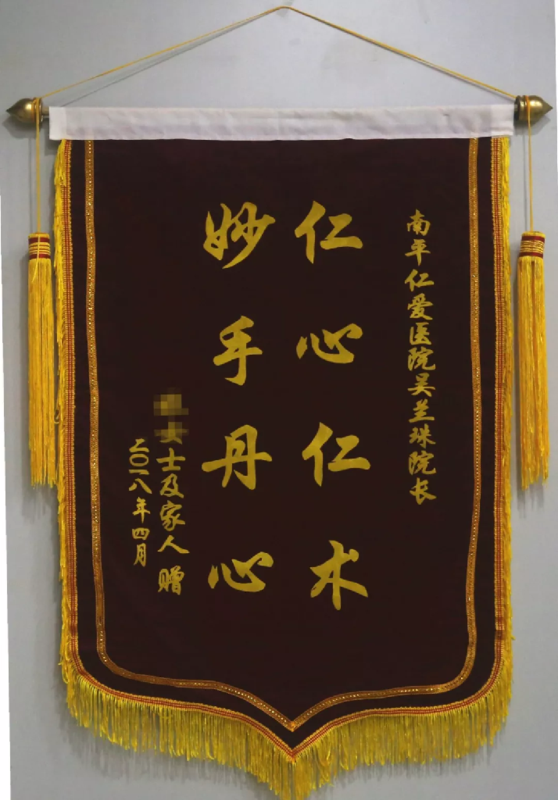 南平仁爱医院吴兰珠院长
仁心仁术
妙手丹心
女士及家人赠
二〇一八年四月